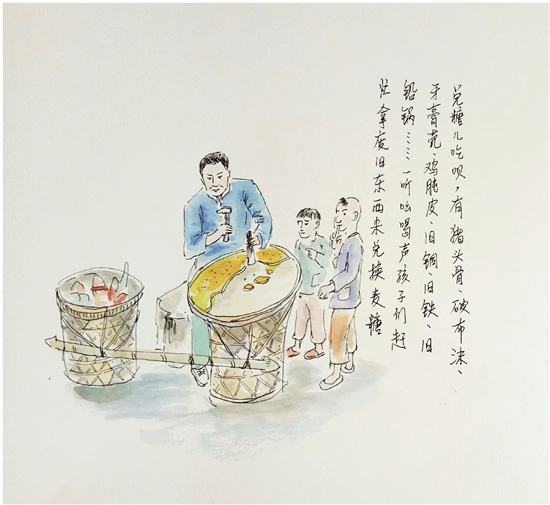 兑糖儿吃呗，有猪头骨、破布沫、
牙膏壳、鸡肫皮、旧铜、旧铁、旧
铝锅……一听吆喝声孩子们赶
忙拿废旧东西来兑换麦糖